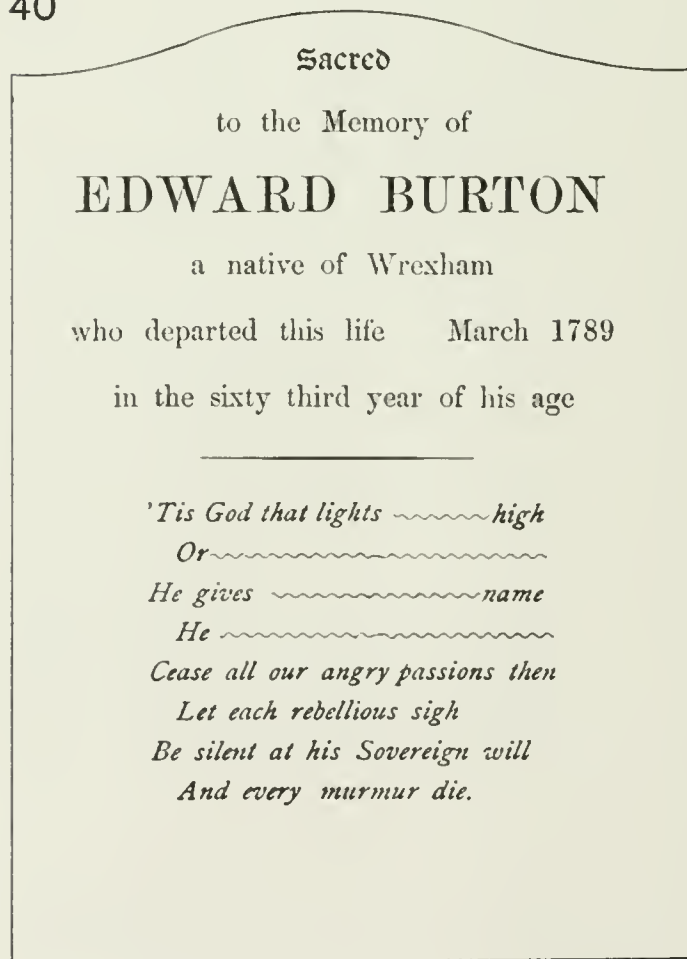 40
Sacred
to the Memory of
EDWARD BURTON
a native of Wrexham
who departed this life March 1789
in the sixty third year of his age
'Tis God that lights high
Or
He gives name
He
Cease all our angry passions then
Let each rebellious sigh
Be silent at his Sovereign will
And every murmur die.